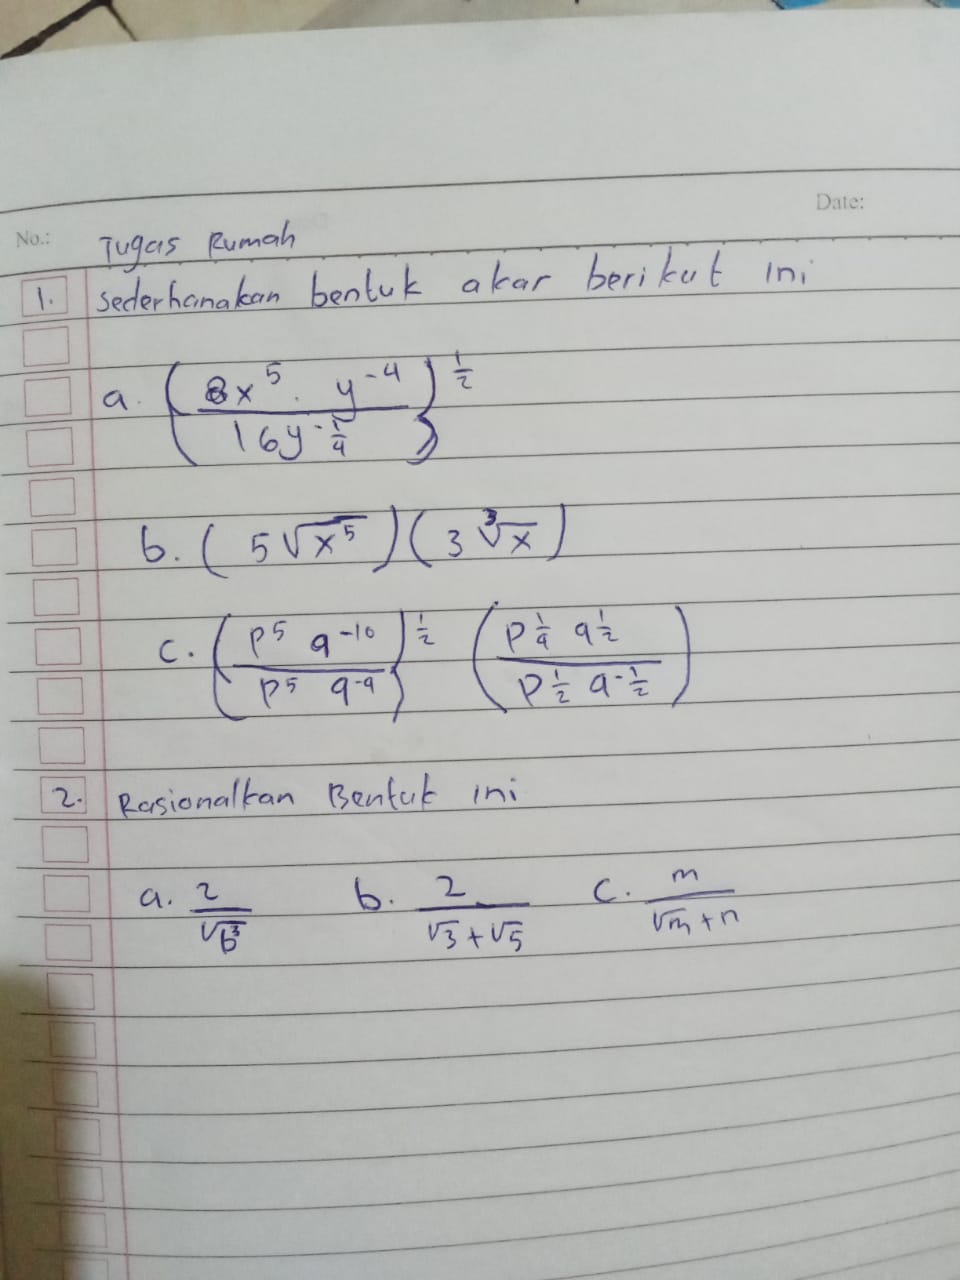 Date:
No.: Tugas Rumah
1. Sederhanakan bentuk akar berikut ini
a. (8x^5 . y^-4 / 16y^-1/4)^1/2
b. (5√x^5)(3 ∛x)
c. (p^5 q^-10 / p^5 q^-4)^1/2 (p^1/4 q^1/2 / p^1/2 q^-1/2)
2. Rasionalkan Bentuk ini
a. 2/√b^3 b. 2/√3+√5 c. m/√m+n